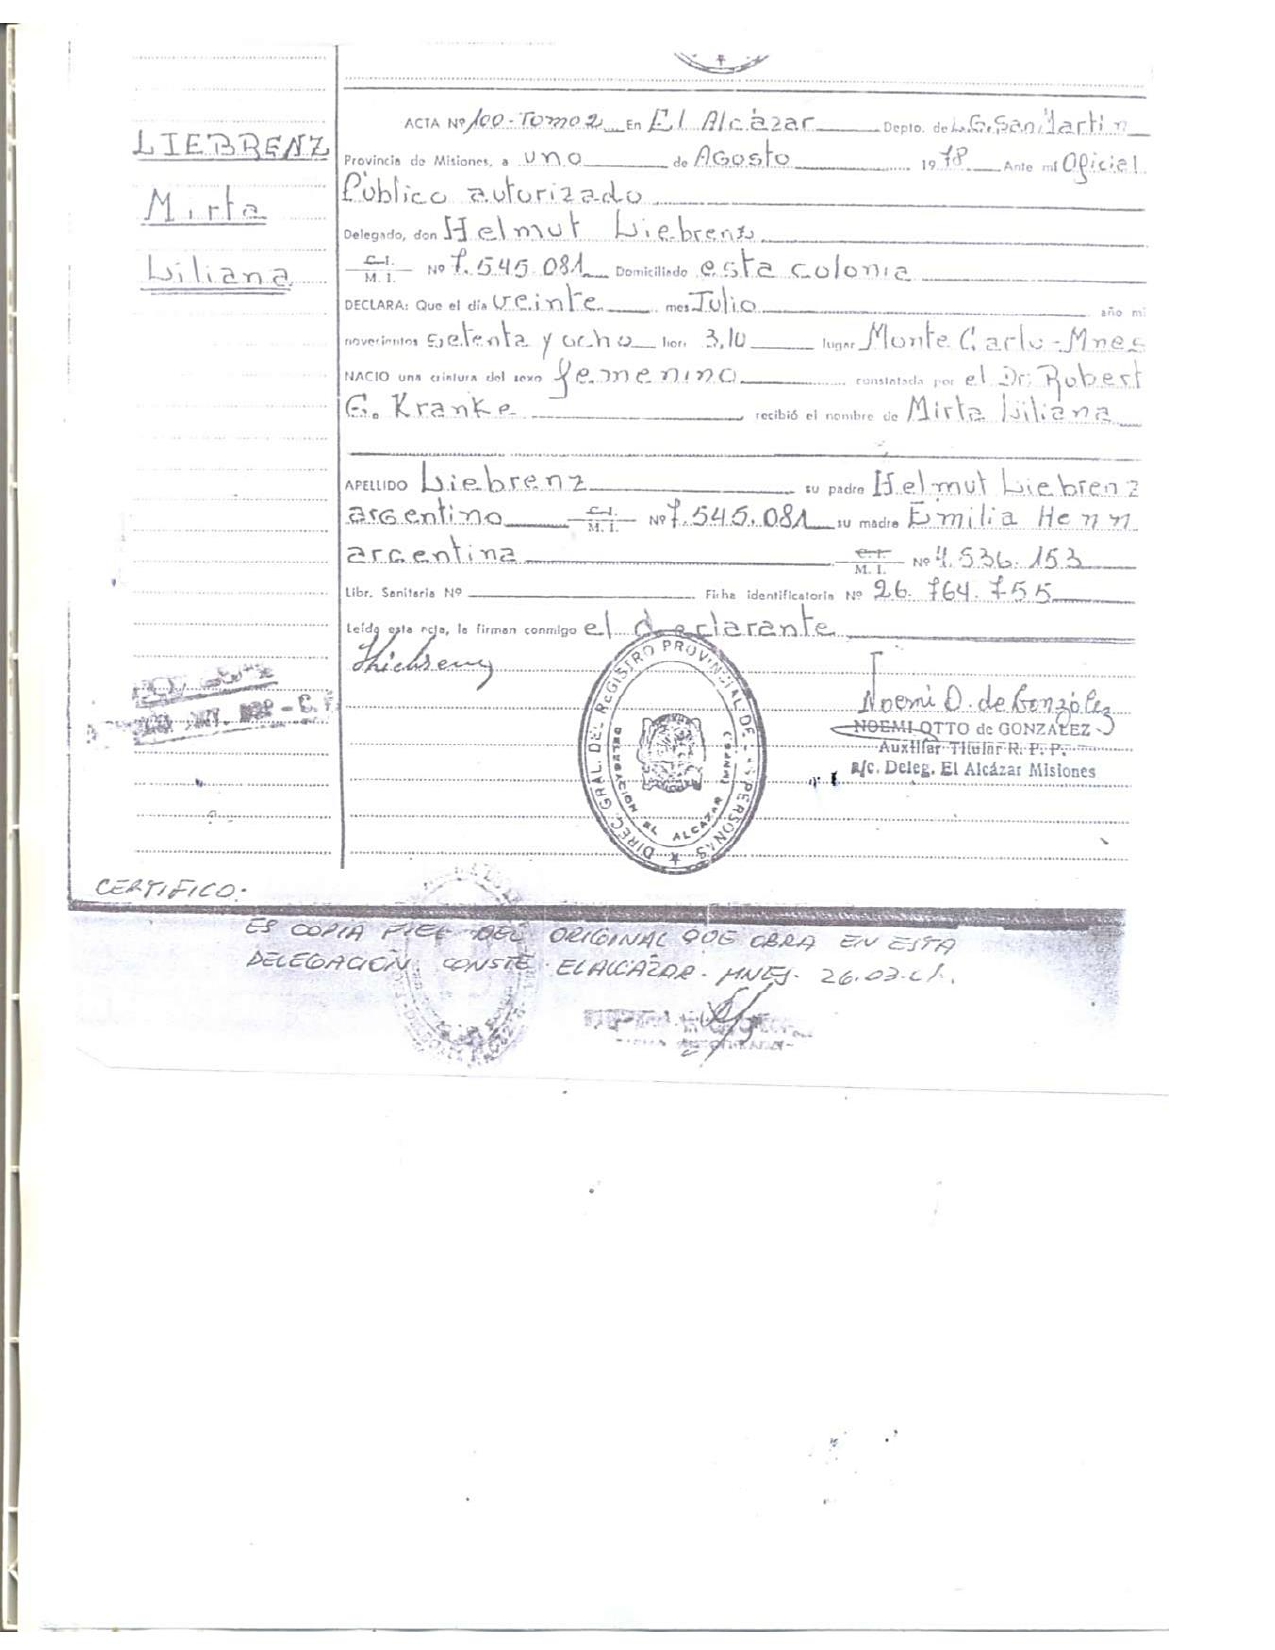 LIEBRENZ
Mirta
Liliana
ACTA Nº 100-Tomo 2 En El Alcázar Depto. de L.G.San Martin
Provincia de Misiones, a uno de Agosto 1978 Ante mí Oficial
Público autorizado
Delegado, don Helmut Liebrenz
C.I.
M. I. Nº 7.545.081 Domiciliado esta colonia
DECLARA: Que el día veinte mes Julio año mil
novecientos setenta y ocho hora 3,10 lugar Monte Carlo-Mnes
NACIO una criatura del sexo femenino constatada por el Dr. Robert
G. Kranke recibió el nombre de Mirta Liliana
APELLIDO Liebrenz su padre Helmut Liebrenz
argentino C.I. M. I. Nº 7.545.081 su madre Emilia Henn
argentina C.I. M. I. Nº 4.536.153
Libr. Sanitaria Nº Ficha identificatoria Nº 26.764.755
Leída esta acta, la firman conmigo el declarante
DIREC. GRAL. DEL REGISTRO PROVINCIAL DE LAS PERSONAS
EL ALCAZAR (MNES.)
Noemi O. de González
NOEMI OTTO de GONZALEZ
Auxiliar Titular R. P. P.
a/c. Deleg. El Alcázar Misiones
CERTIFICO:
ES COPIA FIEL DEL ORIGINAL QUE OBRA EN ESTA
DELEGACION. CONSTE. EL ALCAZAR. MNES. 26.03